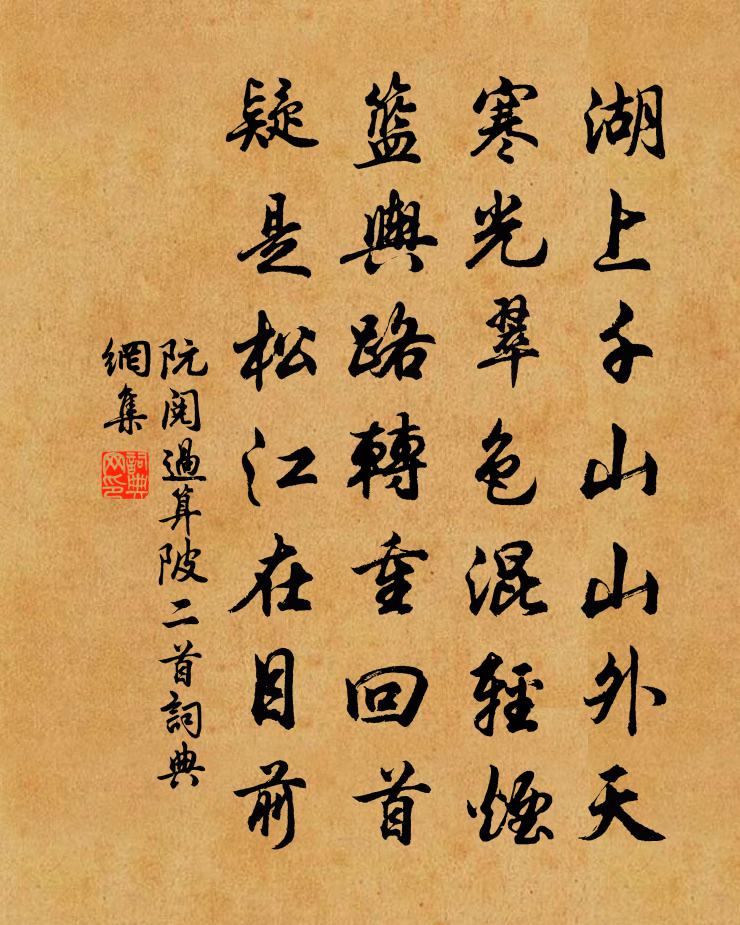 湖上千山山外天
寒光翠色混輕煙
籃輿路轉重回首
疑是松江在目前
阮閱過算陂二首詞典
網集
詞典
网印